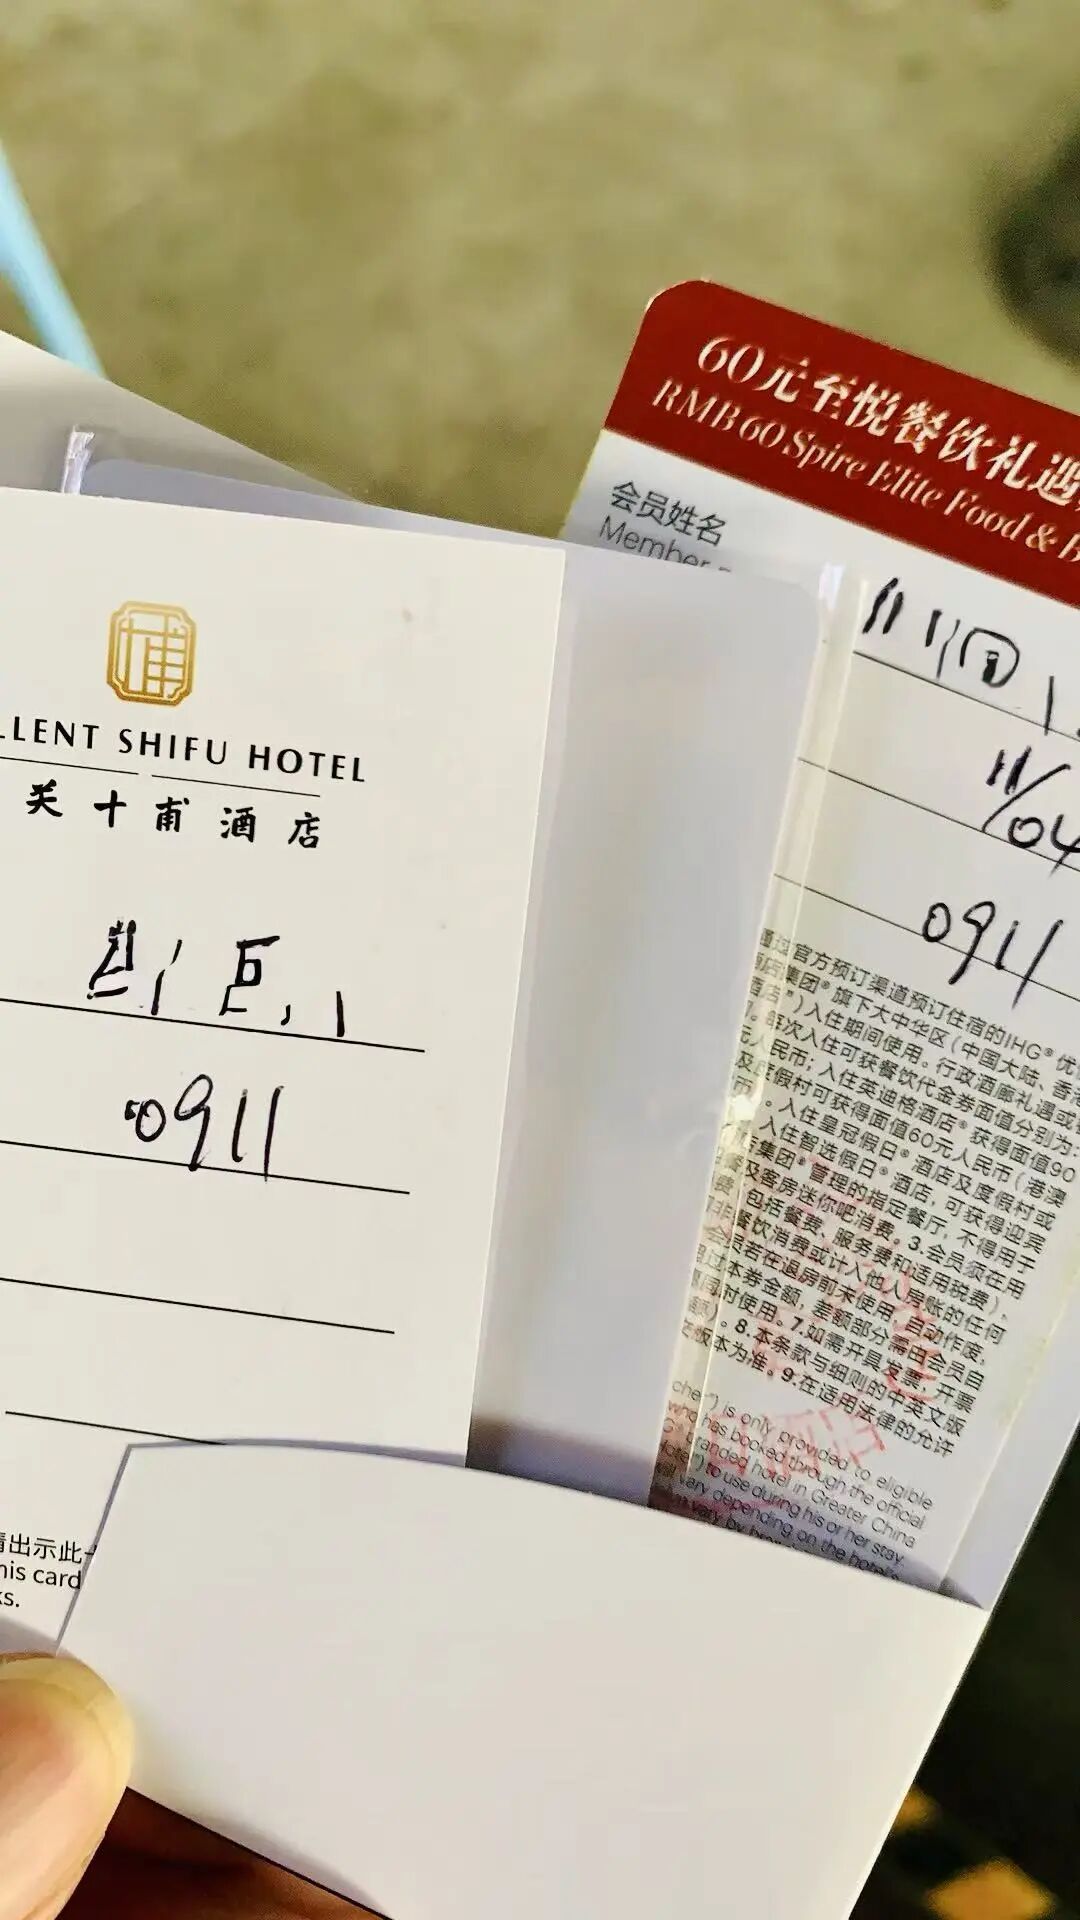 LLENT SHIFU HOTEL
关十甫酒店
0911
请出示此卡
his card
ks.
60元至悦餐饮礼遇
RMB 60 Spire Elite Food & B
会员姓名
Member
11/04
0911
通过官方预订渠道预订住宿的IHG®优
酒店集团®旗下大中华区（中国大陆、香港
酒店”）入住期间使用。行政酒廊礼遇或
每次入住可获餐饮代金券面值分别为：
元人民币；入住英迪格酒店®获得面值90
及度假村可获得面值60元人民币（港澳
币。入住皇冠假日®酒店及度假村或
入住智选假日®酒店，可获得迎宾
集团®管理的指定餐厅，不得用于
及客房迷你吧消费。3.会员须在用
包括餐费、服务费和适用税费）。
非餐饮消费或计入他人房账的任何
会员若在退房前未使用，自动作废，
过本券金额，差额部分需由会员自
同时使用。7.如需开具发票，开票
。8.本条款与细则的中英文版
文版本为准。9.在适用法律的允许
cher”) is only provided to eligible
who has booked through the official
G® branded hotel in Greater China
Hotel”) to use during his or her stay.
will vary depending on the hotel's